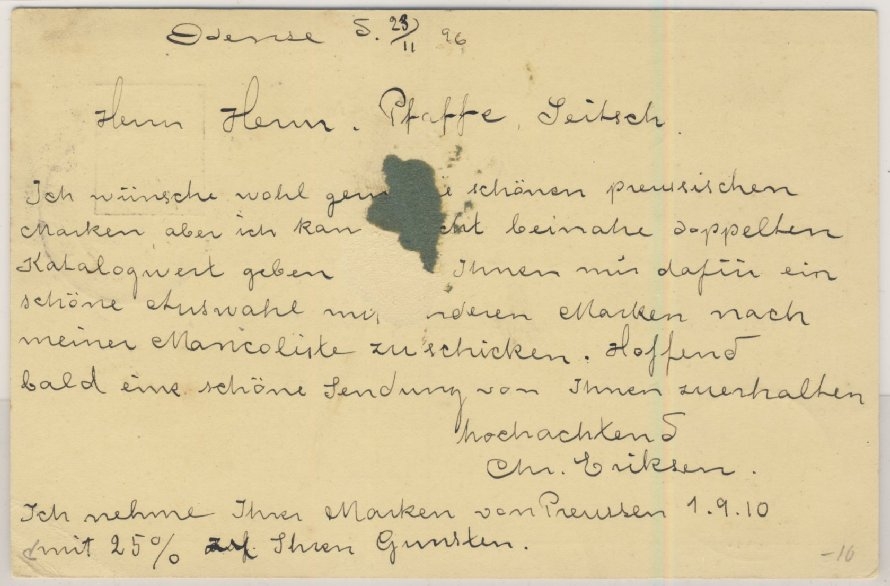 Odense d. 28/11 96
Herrn Herm. Pfaffe, Seitsch.
Ich wünsche wohl schönen preussischen
Marken aber ich kan beinahe doppelten
Katalogwert geben Ihnen mir dafür ein
schöne Auswahl Marken nach
meiner Mancoliste zu schicken. Hoffend
bald eine schöne Sendung von Ihnen zuerhalten
hochachtend
Chr. Eriksen.
Ich nehme Ihre Marken von Preussen 1.9.10
mit 25% Ihren Gunsten.
-10